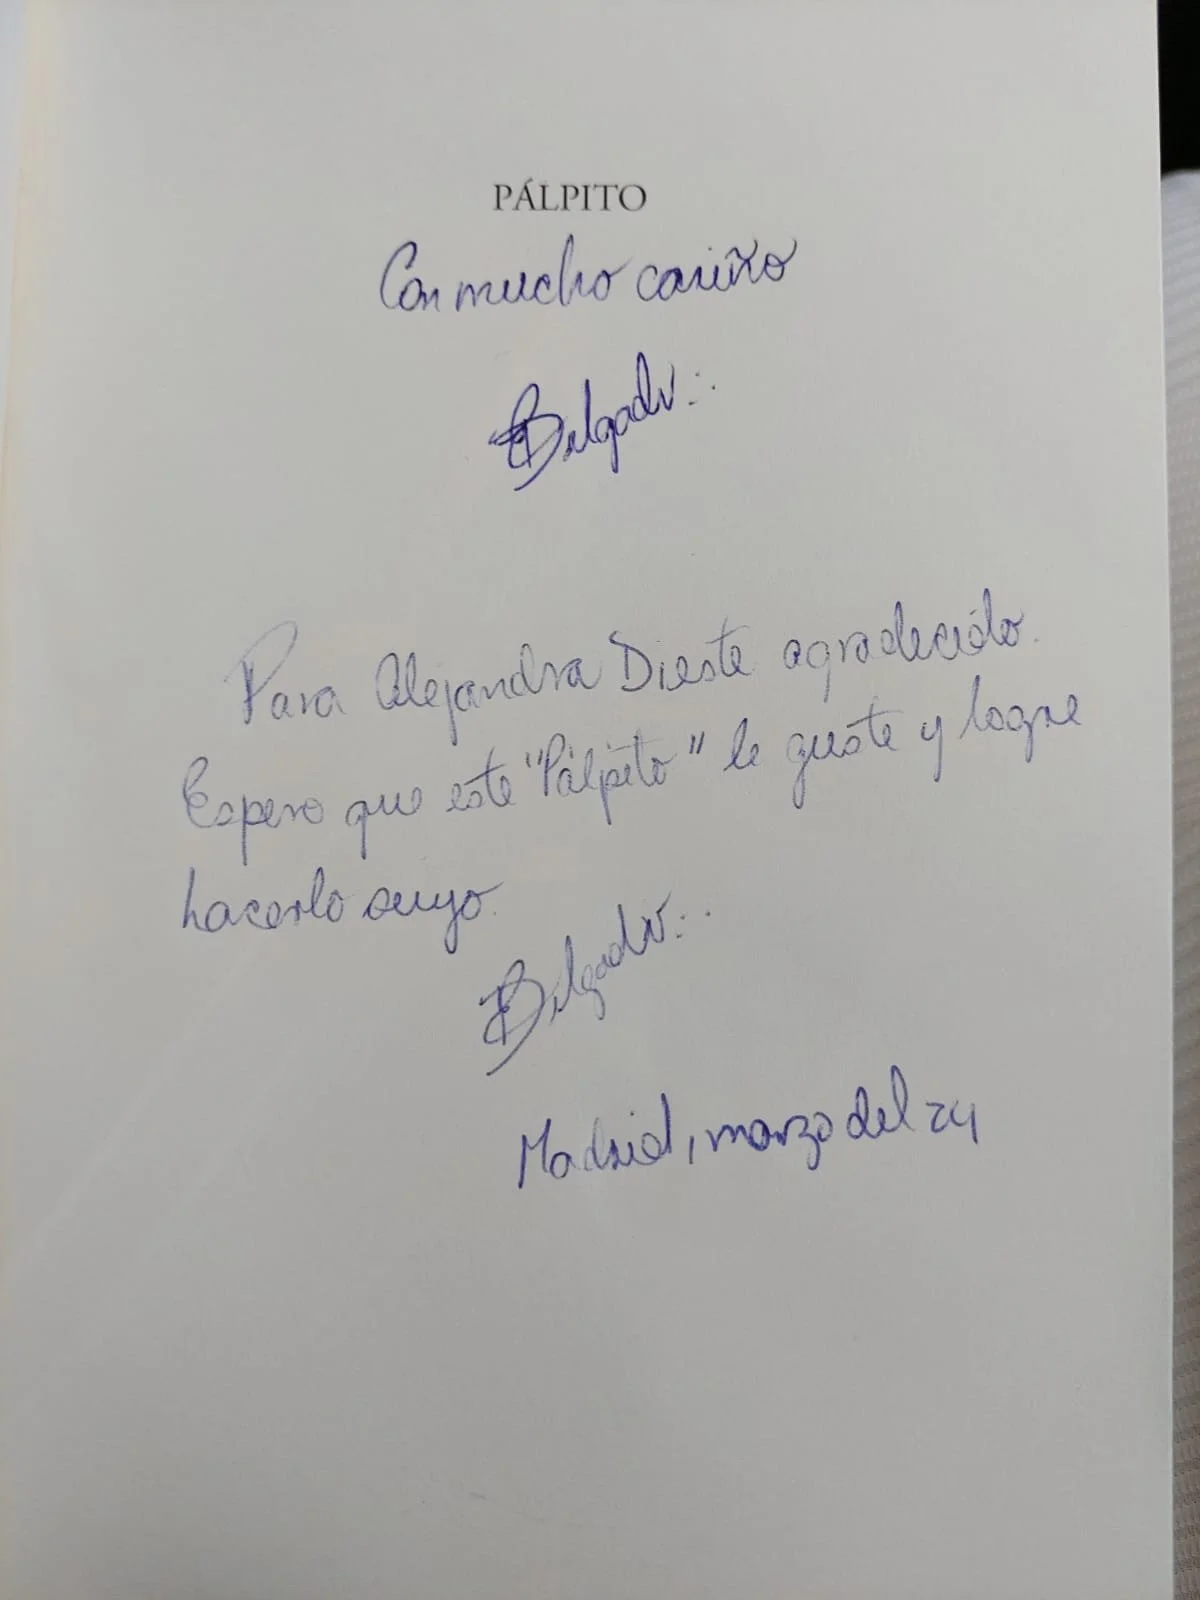 PÁLPITO
Con mucho cariño
Delgado
Para Alejandra Dieste agradecido.
Espero que este "Pálpito" le guste y logre
hacerlo suyo.
Delgado
Madrid, marzo del 24